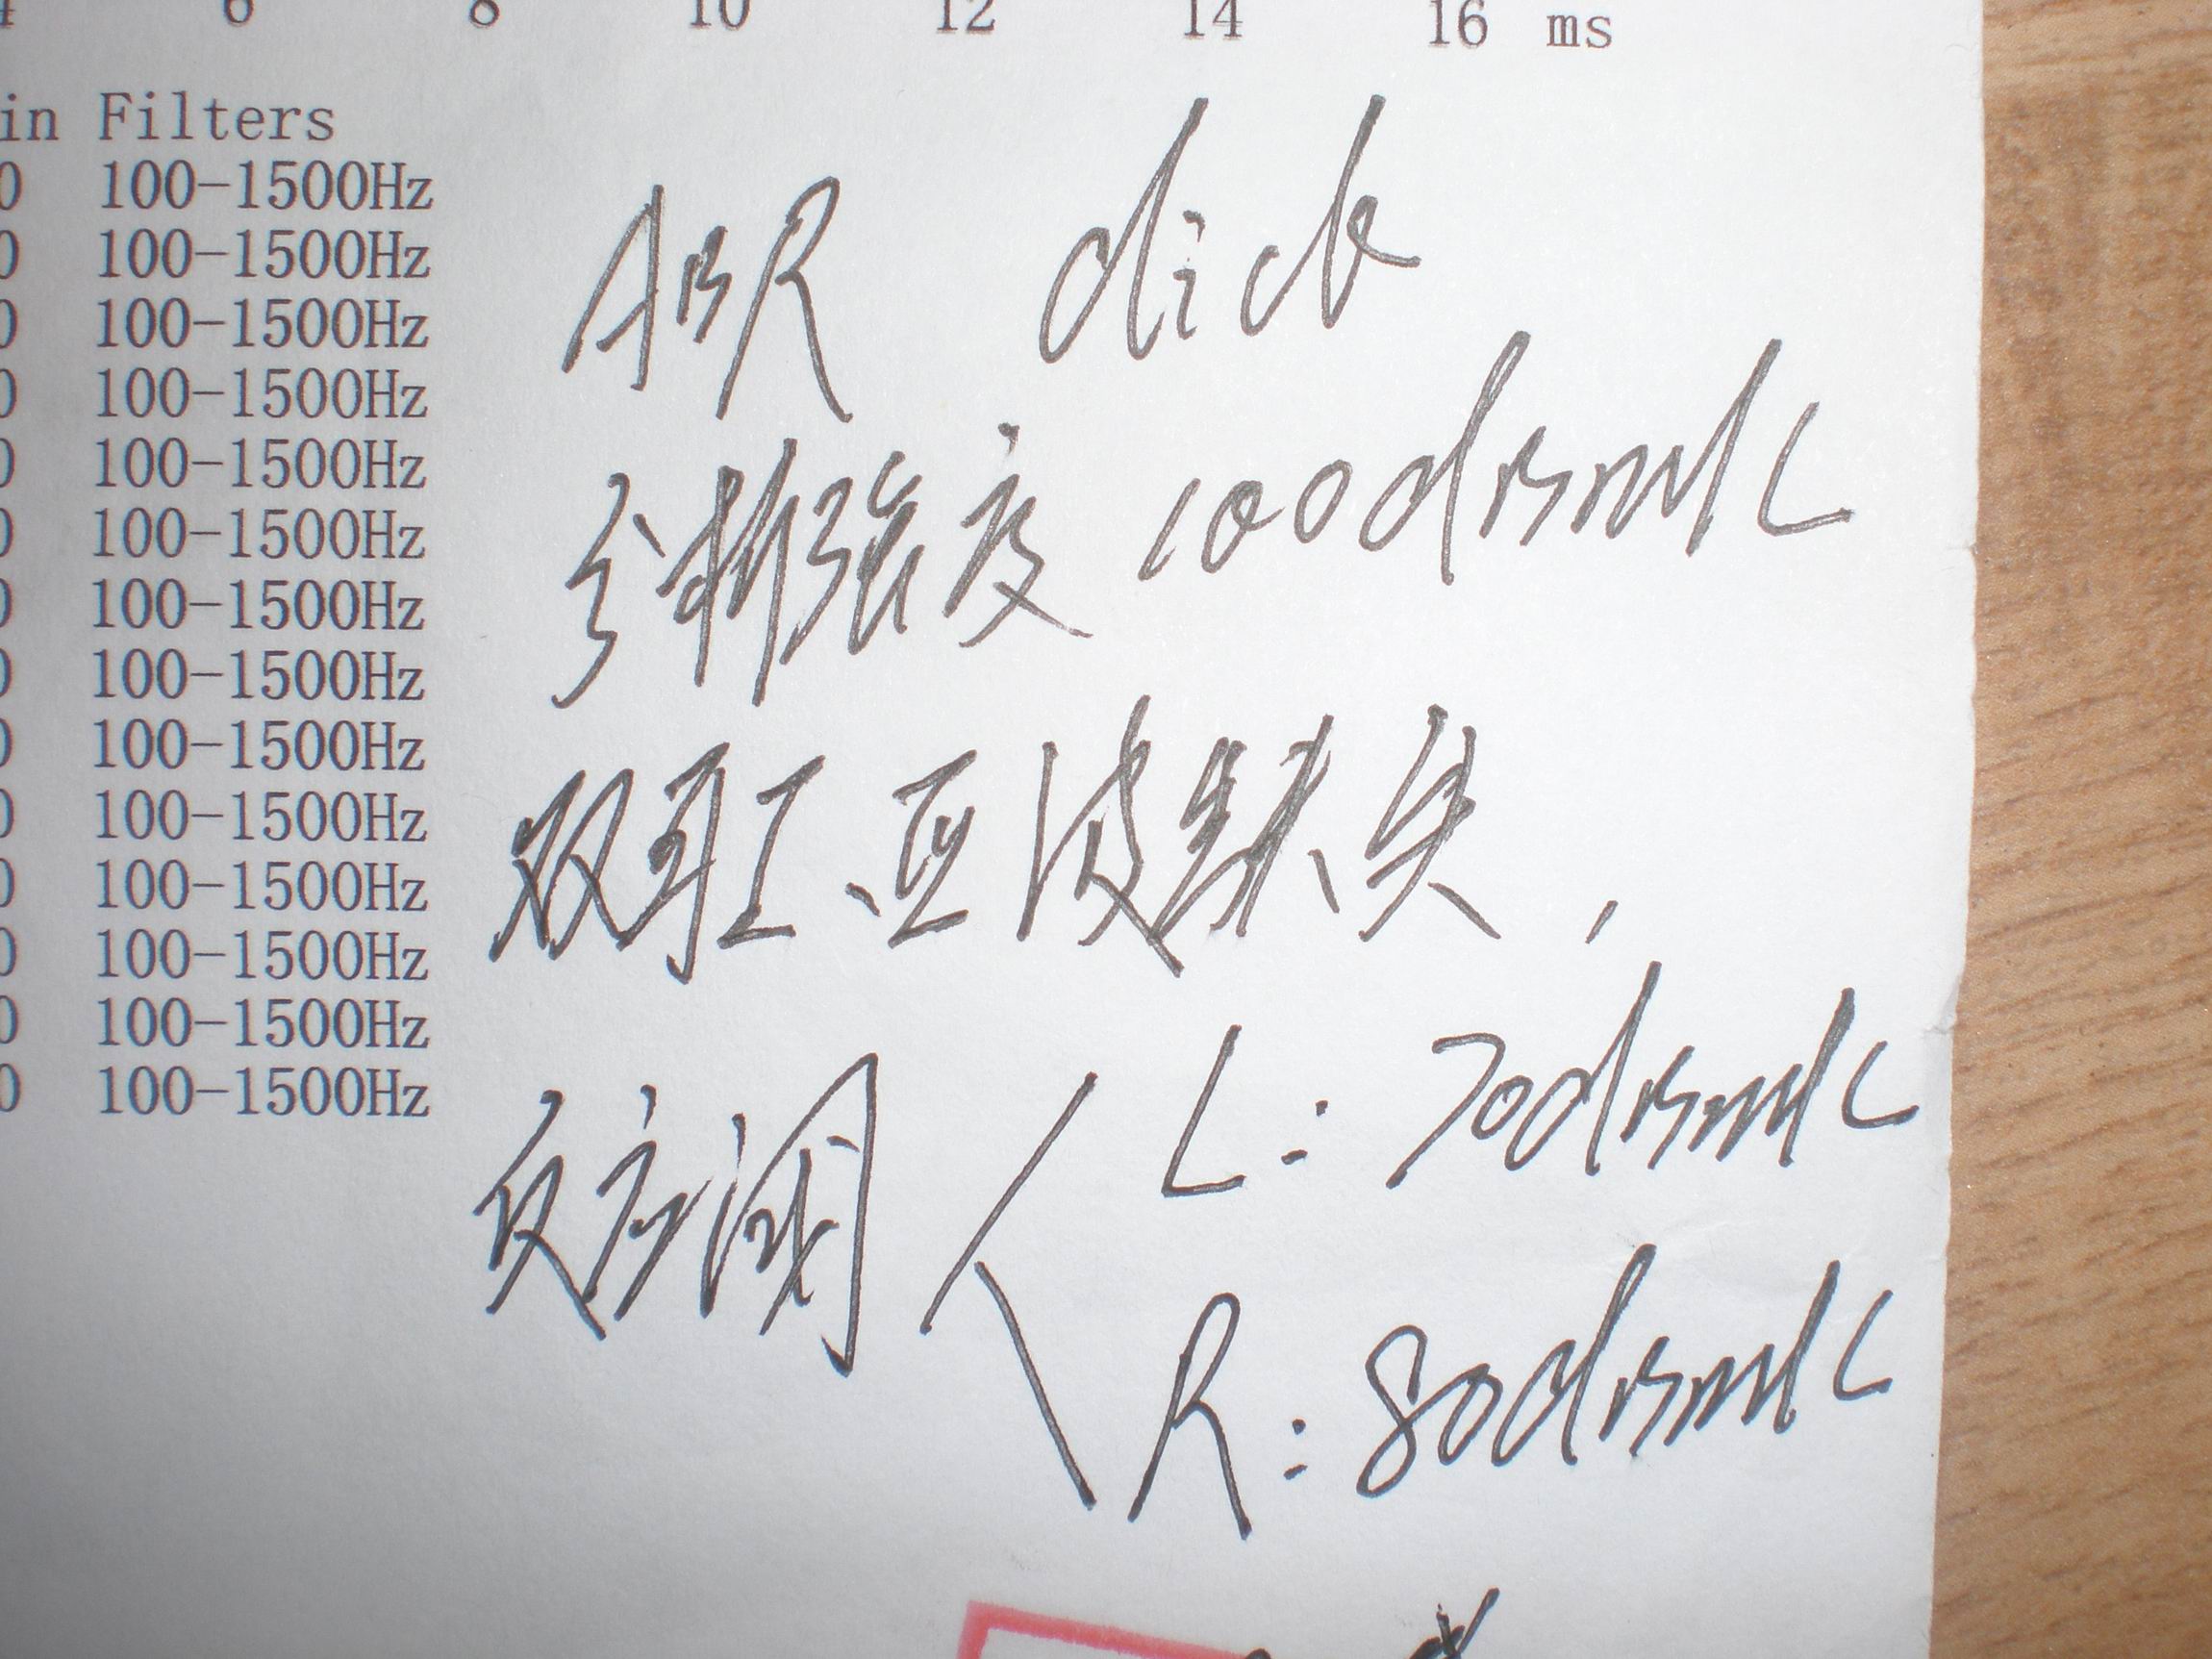 6 8 10 12 14 16 ms
in Filters
0 100-1500Hz
0 100-1500Hz
0 100-1500Hz
0 100-1500Hz
0 100-1500Hz
0 100-1500Hz
0 100-1500Hz
0 100-1500Hz
0 100-1500Hz
0 100-1500Hz
0 100-1500Hz
0 100-1500Hz
0 100-1500Hz
0 100-1500Hz
ABR click
分析强度 100dBnHL
双耳I、III波缺失,
反应阈 L: 70dBnHL
R: 80dBnHL